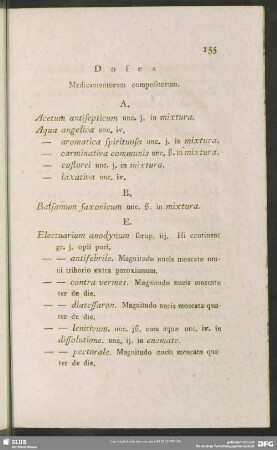 155
Doses
Medicamentorum compositorum.
A.
Acetum antisepticum unc. j. in mixtura.
Aqua angelica unc. iv.
— aromatica spirituosa unc. j. in mixtura.
— carminativa communis unc. ß. in mixtura.
— castorei unc. j. in mixtura.
— laxativa unc. iv.
B.
Balsamum saxonicum unc. ß. in mixtura.
E.
Electuarium anodynum scrup. iij. Hi continent
gr. j. opii puri.
— — antifebrile. Magnitudo nucis moscatæ om-
ni trihorio extra paroxismum.
— — contra vermes. Magnitudo nucis moscatæ
ter de die.
— — diatessaron. Magnitudo nucis moscatæ qua-
ter de die.
— — lenitivum. unc. jß. cum aquæ unc. iv. in
dissolutione. unc. ij. in enemate.
— — pectorale. Magnitudo nucis moscatæ qua-
ter de die.
SLUB
DFG